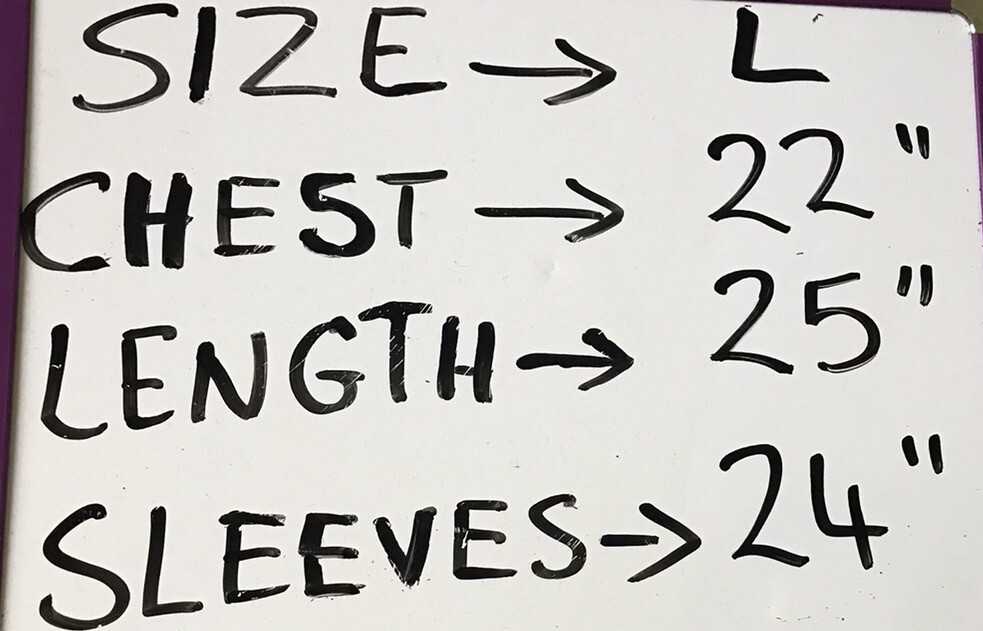 SIZE → L
CHEST → 22"
LENGTH → 25"
SLEEVES → 24"